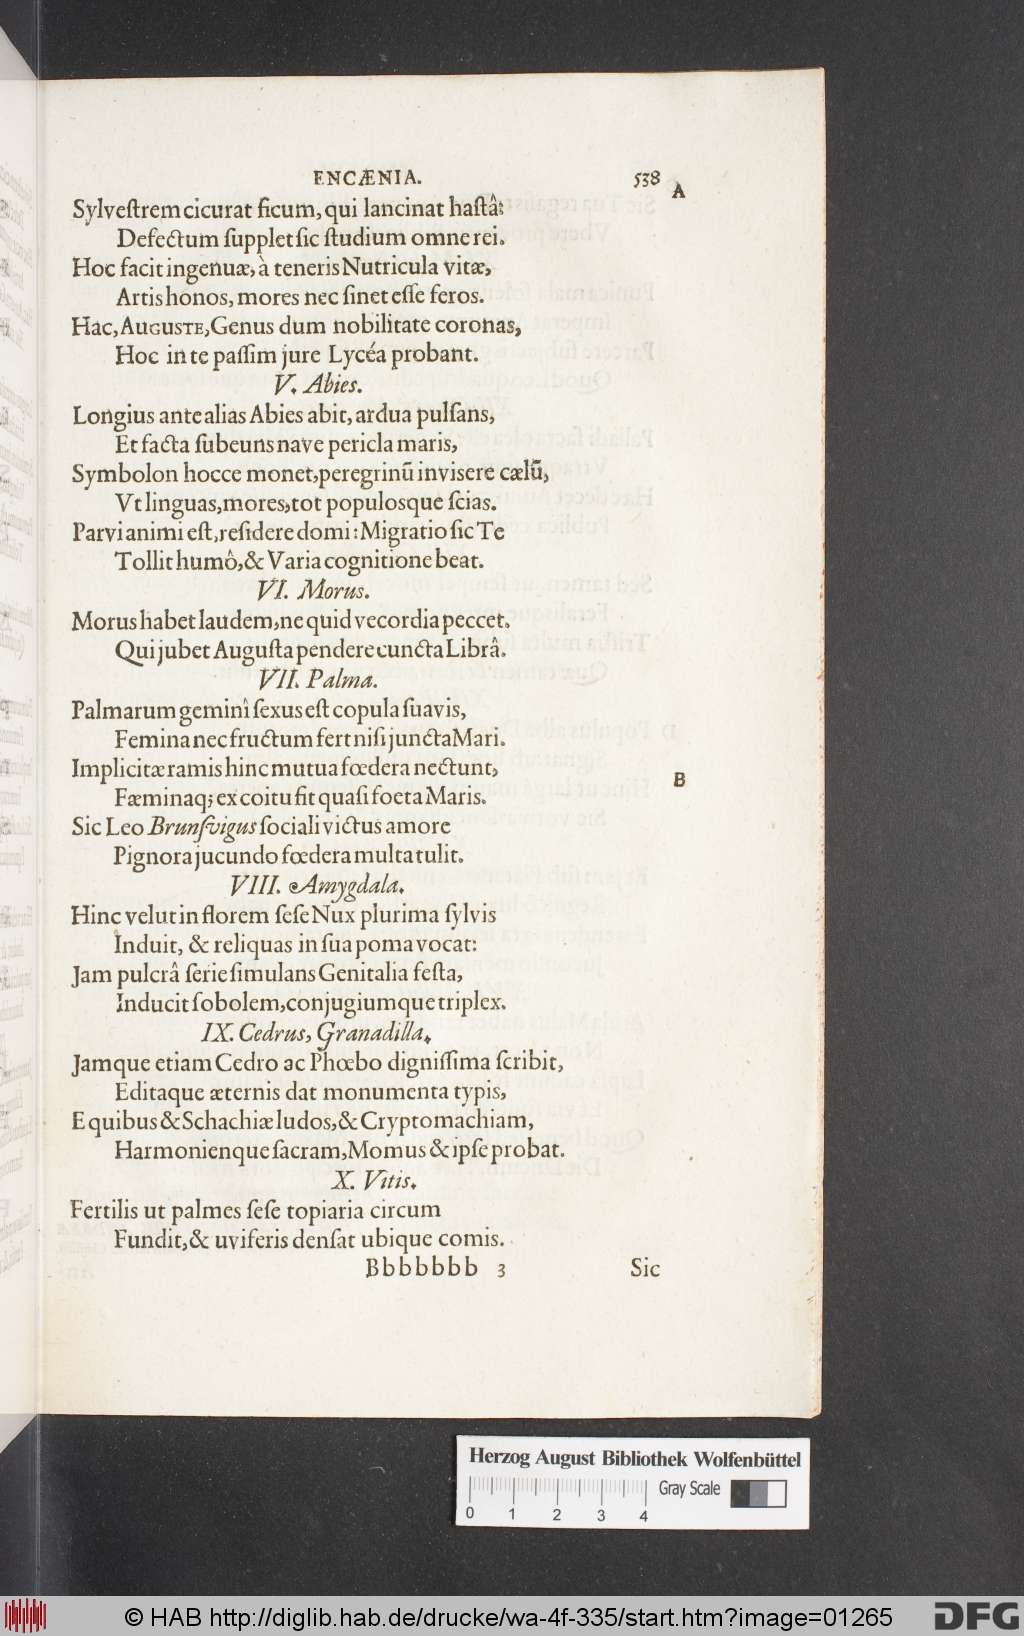 ENCÆNIA. 538
A
Sylveſtrem cicurat ficum, qui lancinat haſtâ:
Defectum ſupplet ſic ſtudium omne rei.
Hoc facit ingenuæ, à teneris Nutricula vitæ,
Artis honos, mores nec ſinet eſſe feros.
Hac, AUGUSTE, Genus dum nobilitate coronas,
Hoc in te paſſim jure Lycéa probant.
V. Abies.
Longius ante alias Abies abit, ardua pulſans,
Et facta ſubeuns nave pericla maris,
Symbolon hocce monet, peregrinū inviſere cælū,
Vt linguas, mores, tot populosque ſcias.
Parvi animi eſt, reſidere domi: Migratio ſic Te
Tollit humô, & Varia cognitione beat.
VI. Morus.
Morus habet laudem, ne quid vecordia peccet.
Qui jubet Auguſta pendere cuncta Librâ.
VII. Palma.
Palmarum geminî ſexus eſt copula ſuavis,
Femina nec fructum fert niſi juncta Mari.
Implicitæ ramis hinc mutua fœdera nectunt,
B
Fæminaq; ex coitu fit quaſi foeta Maris.
Sic Leo Brunſvigus ſociali victus amore
Pignora jucundo fœdera multa tulit.
VIII. Amygdala.
Hinc velut in florem ſeſe Nux plurima ſylvis
Induit, & reliquas in ſua poma vocat:
Jam pulcrâ ſerie ſimulans Genitalia feſta,
Inducit ſobolem, conjugiumque triplex.
IX. Cedrus, Granadilla.
Jamque etiam Cedro ac Phœbo digniſſima ſcribit,
Editaque æternis dat monumenta typis,
E quibus & Schachiæ ludos, & Cryptomachiam,
Harmonienque ſacram, Momus & ipſe probat.
X. Vitis.
Fertilis ut palmes ſeſe topiaria circum
Fundit, & uviferis denſat ubique comis.
Bbbbbbb 3 Sic
Herzog August Bibliothek Wolfenbüttel
Gray Scale
0 1 2 3 4
© HAB http://diglib.hab.de/drucke/wa-4f-335/start.htm?image=01265
DFG